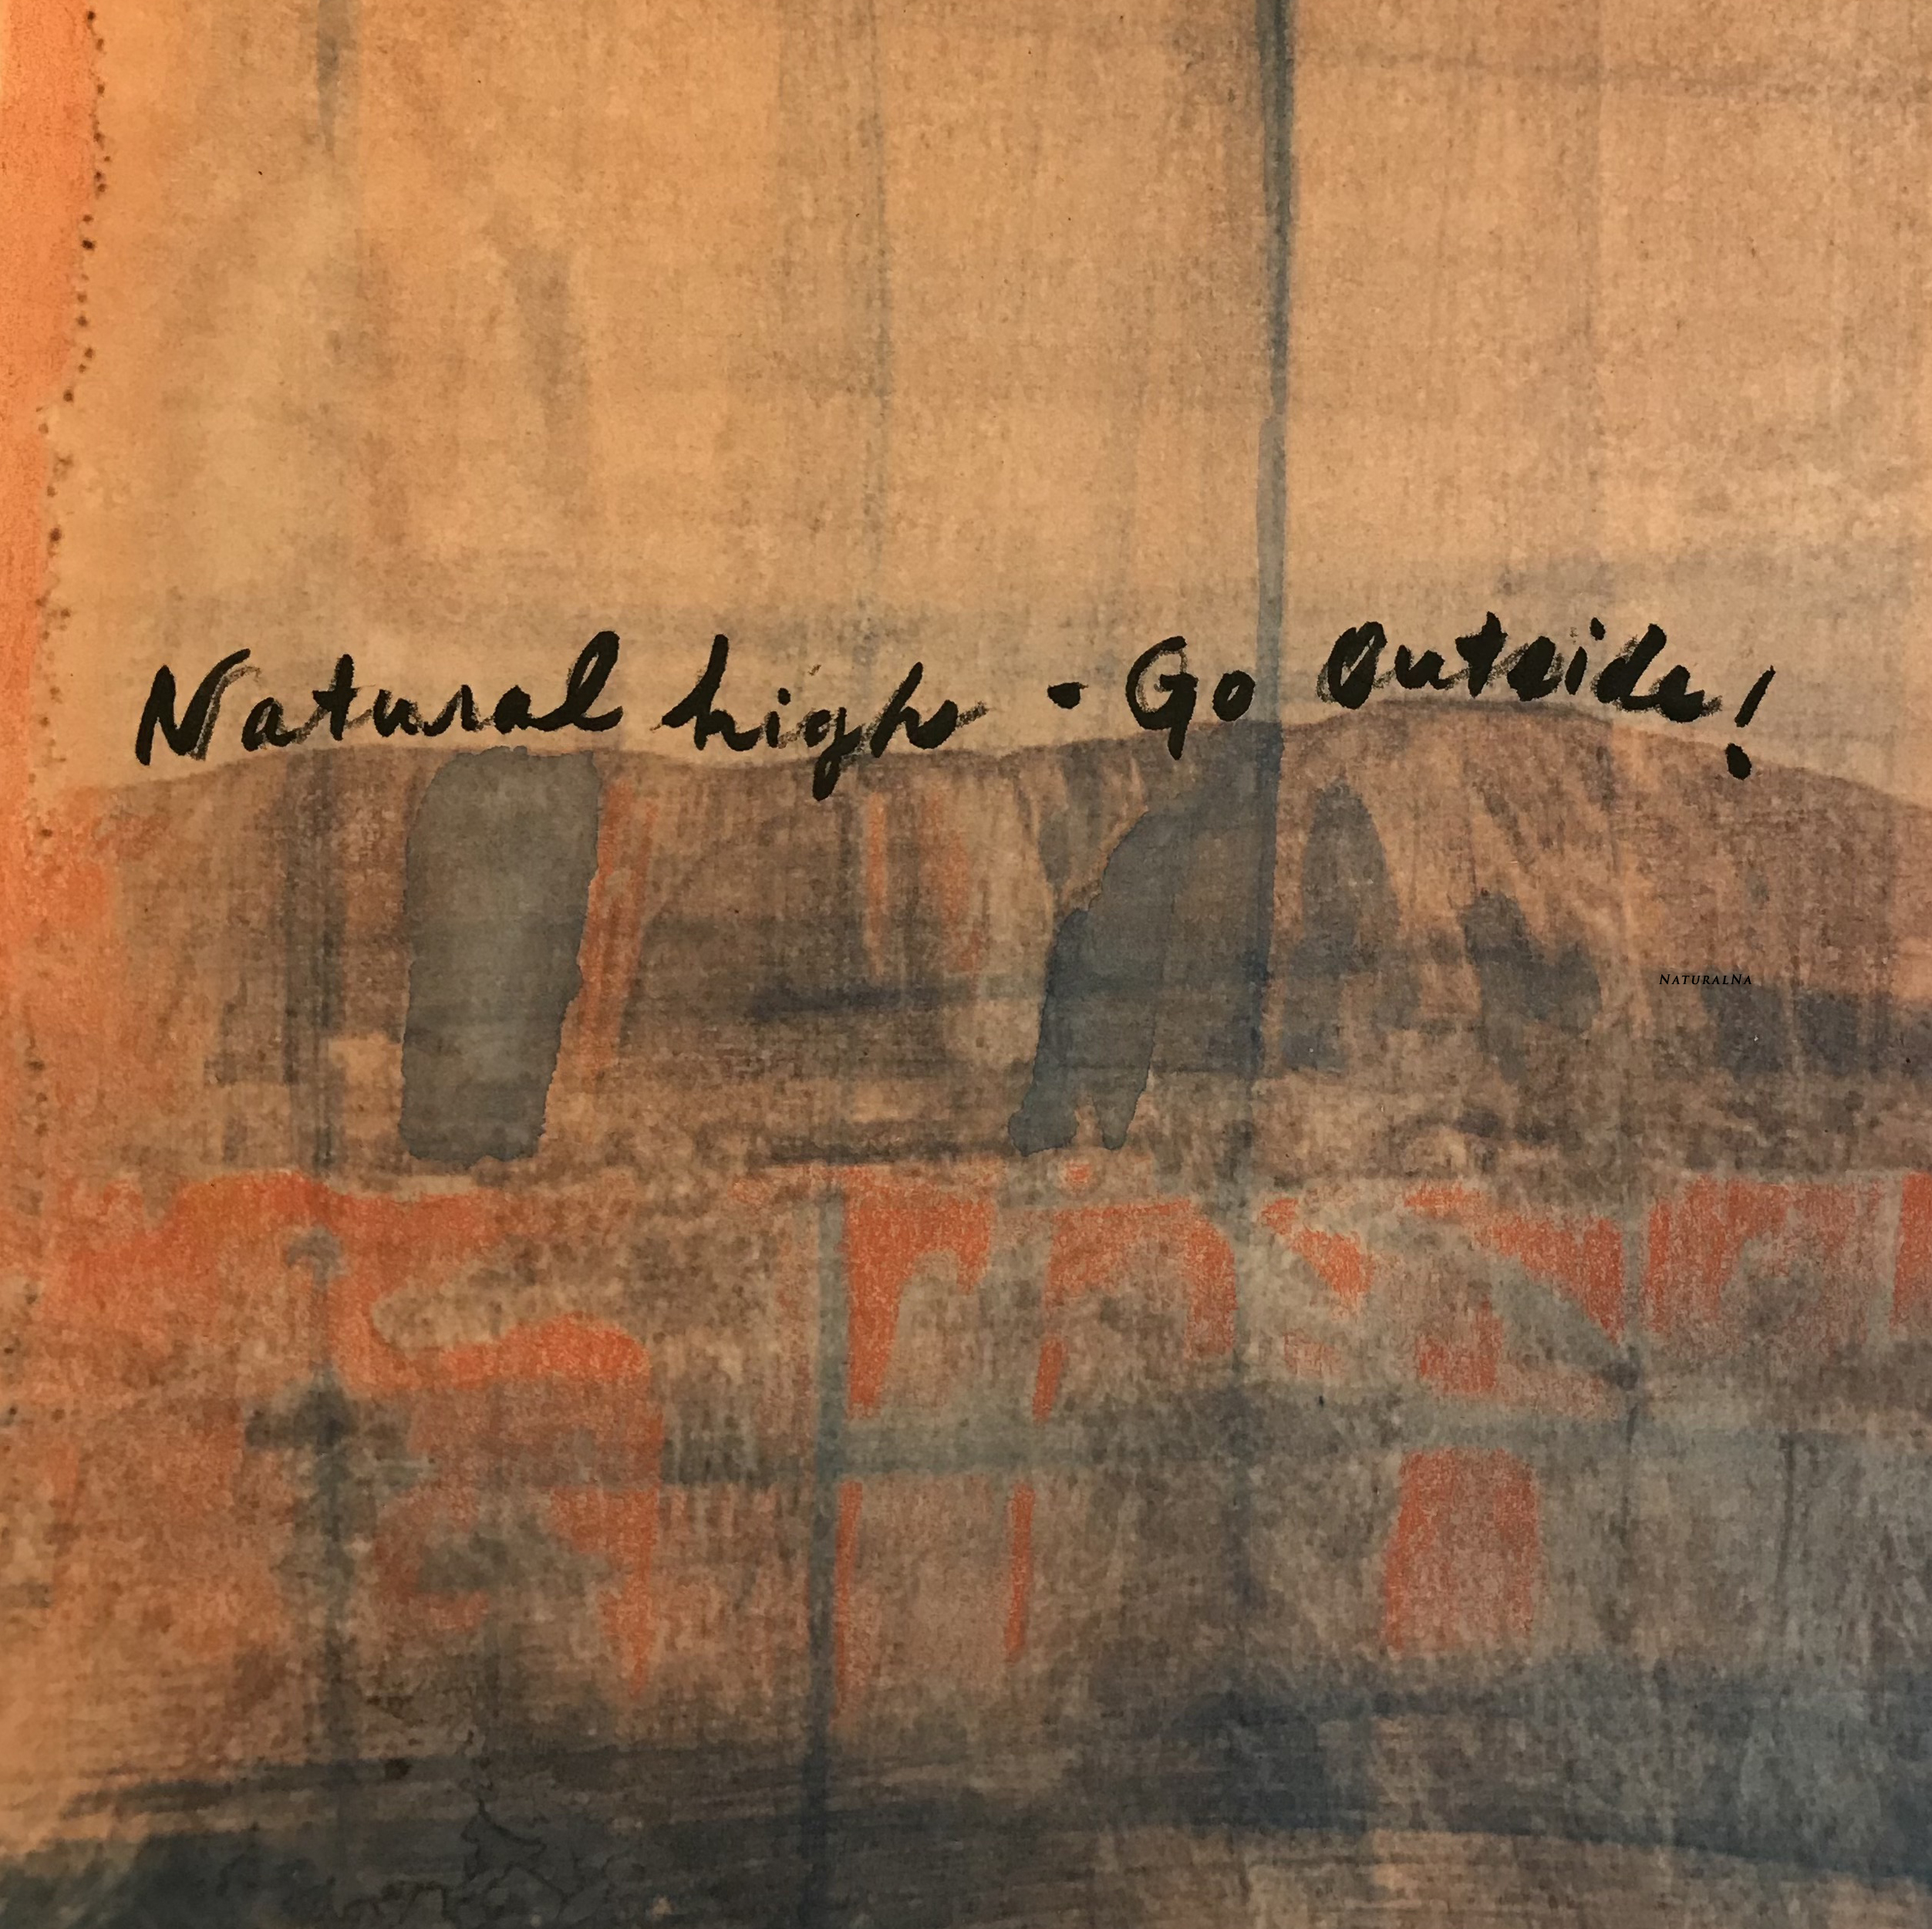 Natural high - Go Outside!
NATURALNA